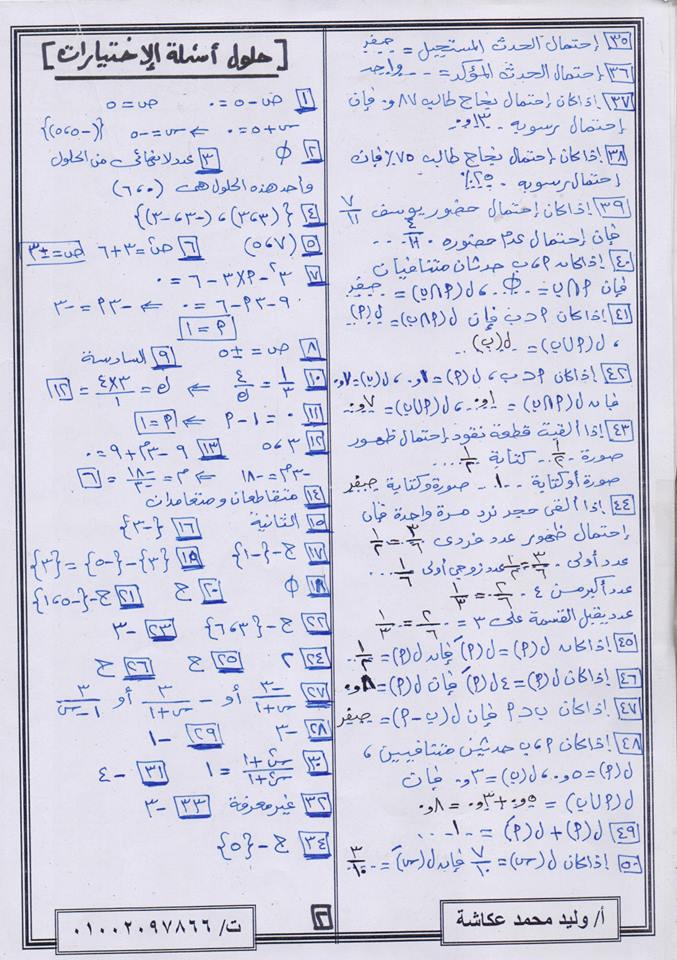 [حلول أسئلة الاختيارات]
١ ص - ٥ = ٠ ص = ٥
س + ٥ = ٠ ⇐ س = -٥ {(-٥،٥)}
٢ Φ ٣ عدد لا نهائي من الحلول
وأحد هذه الحلول هى (٠،٦)
٤ {(٣،٣)،(-٣،-٣)}
٥ (٧،٥) ٦ ص² = ٣+٦ ص = ±٣
٧ ٣² - ٣×٢ - ٦ = ٠
٩ - ٣٢ - ٦ = ٠ ⇐ -٣٢ = -٣
٢ = ١
٨ ص = ±٥ ٩ السادسة
١٠ ١/٣ = ٤/ك ⇐ ك = ٣×٤/١ = ١٢
١١ ٠ = ١ - ٢ ⇐ ٢ = ١
١٢ ٣،٥ ١٣ ٩ - ٣م + ٩ = ٠
-٣م = -١٨ ⇐ م = -١٨/-٣ = ٦
١٤ متقاطعان ومتعامدان
١٥ الثانية ١٦ {-٣}
١٧ ح-{-١} ١٥ {٣}-{-٥} = {٣}
١٨ Φ ٢٠ ح ٢١ ح-{-١،٥}
٢٢ ح-{٣،٦} ٢٣ -٣
٢٤ ٢ ٢٥ ح ٢٦ ح
٢٧ -٣/س+١ أو - ٣/س+١ أو ٣/-١-س
٢٨ -٣ ٢٩ -١
٣٠ س²+١/س²+١ = ١ ٣١ -٤
٣٢ غير معرفة ٣٣ -٣
٣٤ ح-{٥}
٣٥ إحتمال الحدث المستحيل = صفر
٣٦ إحتمال الحدث المؤكد = واحد
٣٧ إذا كان إحتمال نجاح طالب ٨٧و٠ فإن
إحتمال رسوبه ٠ ١٣و٠
٣٨ إذا كان إحتمال نجاح طالب ٧٥٪ فإن
إحتمال رسوبه ٠ ٢٥٪
٣٩ إذا كان إحتمال حضور يوسف ٧/١١
فإن إحتمال عدم حضوره ٠ ٤/١١ ...
٤٠ إذا كان ٢،ب حدثان متنافيان
فإن ٢∩ب = Φ ، ل(٢∩ب) = صفر
٤١ إذا كان ٢⊂ب فإن ل(٢∩ب) = ل(٢)
، ل(٢∪ب) = ل(ب) ..
٤٢ إذا كان ٢⊂ب ، ل(٢) = ١و٠ ، ل(ب) = ٧و٠
فإن ل(٢∩ب) = ١و٠ ، ل(٢∪ب) = ٧و٠
٤٣ إذا ألقيت قطعة نقود إحتمال ظهور
صورة ١/٢ .. كتابة ١/٢ ...
صورة أو كتابة ..١.. صورة وكتابة صفر
٤٤ إذا ألقى حجر نرد مرة واحدة فإن
إحتمال ظهور عدد فردى ٣/٦ = ١/٢
عدد أولى ٣/٦ = ١/٢ عدد زوجى أولى ١/٦ ...
عدد أكبر من ٤ ٢/٦ = ١/٣
عدد يقبل القسمة على ٣ = ٢/٦ = ١/٣
٤٥ إذا كان ل(٢) = ل(٢َ) فإن ل(٢) = ١/٢
٤٦ إذا كان ل(٢) = ٤ل(٢َ) فإن ل(٢) = ٨و٠
٤٧ إذا كان ب⊂٢ فإن ل(ب-٢) = صفر
٤٨ إذا كان ٢،ب حدثين متنافيين ،
ل(٢) = ٥و٠ ، ل(ب) = ٣و٠ فإن
ل(٢∪ب) = ٥و٠ + ٣و٠ = ٨و٠
٤٩ ل(٢) + ل(٢َ) = ..١..
٥٠ إذا كان ل(س) = ٧/١٠ فإن ل(سَ) = ٣/١٠
أ/ وليد محمد عكاشة
٢
ت/ ٠١٠٠٢٠٩٧٨٦٦